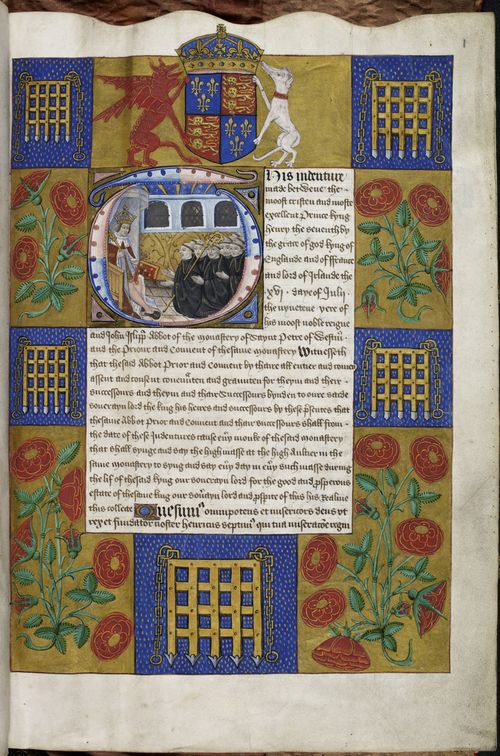 1
This indenture
made betwene the
moost cristen and moste
excellent Prince kyng
henry the seventh by
the grace of god kyng of
Englande and of ffrance
and lord of Irlande the
xvi day of Juli
the nyneteneth yere of
his moost noble reigne
and John Islipp Abbot of the monastery of Saynt Petre of Westm̃
and the Priour and Convent of the same monastery Witnesseth
that the said Abbot Prior and Convent by thaire all entier and
assent and consent covenñten and graunten for theym and their
successours and theym and thaire Successours bynden to oure saide
soverayn lord the king his heirs and successours by these p̃sentes that
the same Abbot Prior and Convent and thair successours shall from
the date of these Indentures cause ev̄y monke of the said monastery
that shall synge and say the high masse at the high Aulter in the
same monastery to syng and say ev̄y day in ev̄y such masse during
the lif of the said kyng our soverayn lord for the good and prosperous
estate of the same king our sov̄ayn lord and p̃spite of this his Realme
this collecte Quesum̃ omnipotens et misericors deus ut
rex et fundator noster henricus septim̃ qui tua